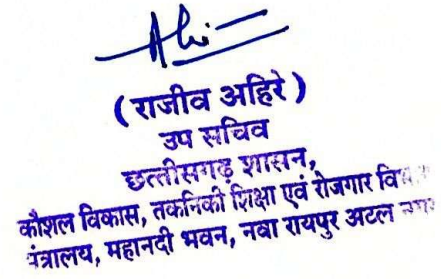 (राजीव अहिरे)
उप सचिव
छत्तीसगढ़ शासन,
कौशल विकास, तकनिकी शिक्षा एवं रोजगार
मंत्रालय, महानदी भवन, नवा रायपुर अटल